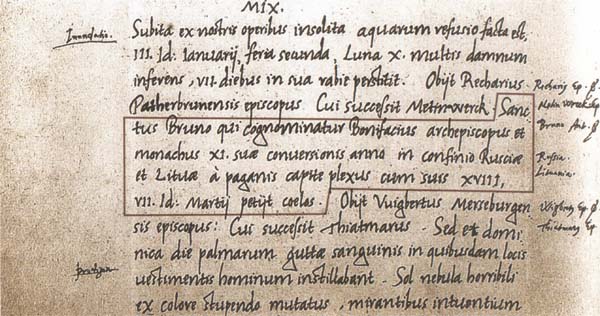 MIX.
Inundatio.
Subita ex nostris operibus insolita aquarum refusio facta est,
III. Id: Ianuarij, feria secunda, Luna X. multis damnum
inferens, VII. diebus in sua rabie perstitit. Obijt Recharius
Patherbrunensis episcopus Cui successit Meinwerck. Sanc
tus Bruno qui cognominatur Bonifacius archepiscopus et
monachus XI. suæ conversionis anno in confinio Rusciæ
et Lituæ à paganis capite plexus cum suis XVIII,
VII. Id: Martij petijt coelos. Obijt Vuigbertus Merseburgen
sis episcopus: Cui successit Thiatmarus. Sed et domi
nica die palmarum guttæ sanguinis in quibusdam locis
vestimentis hominum instillabant. Sol nebula horribili
ex colore stupendo mutatus, mirantibus intuentium
Recharij Ep.
Bruno
Russia.
Lituania.
Ep.
Ep.